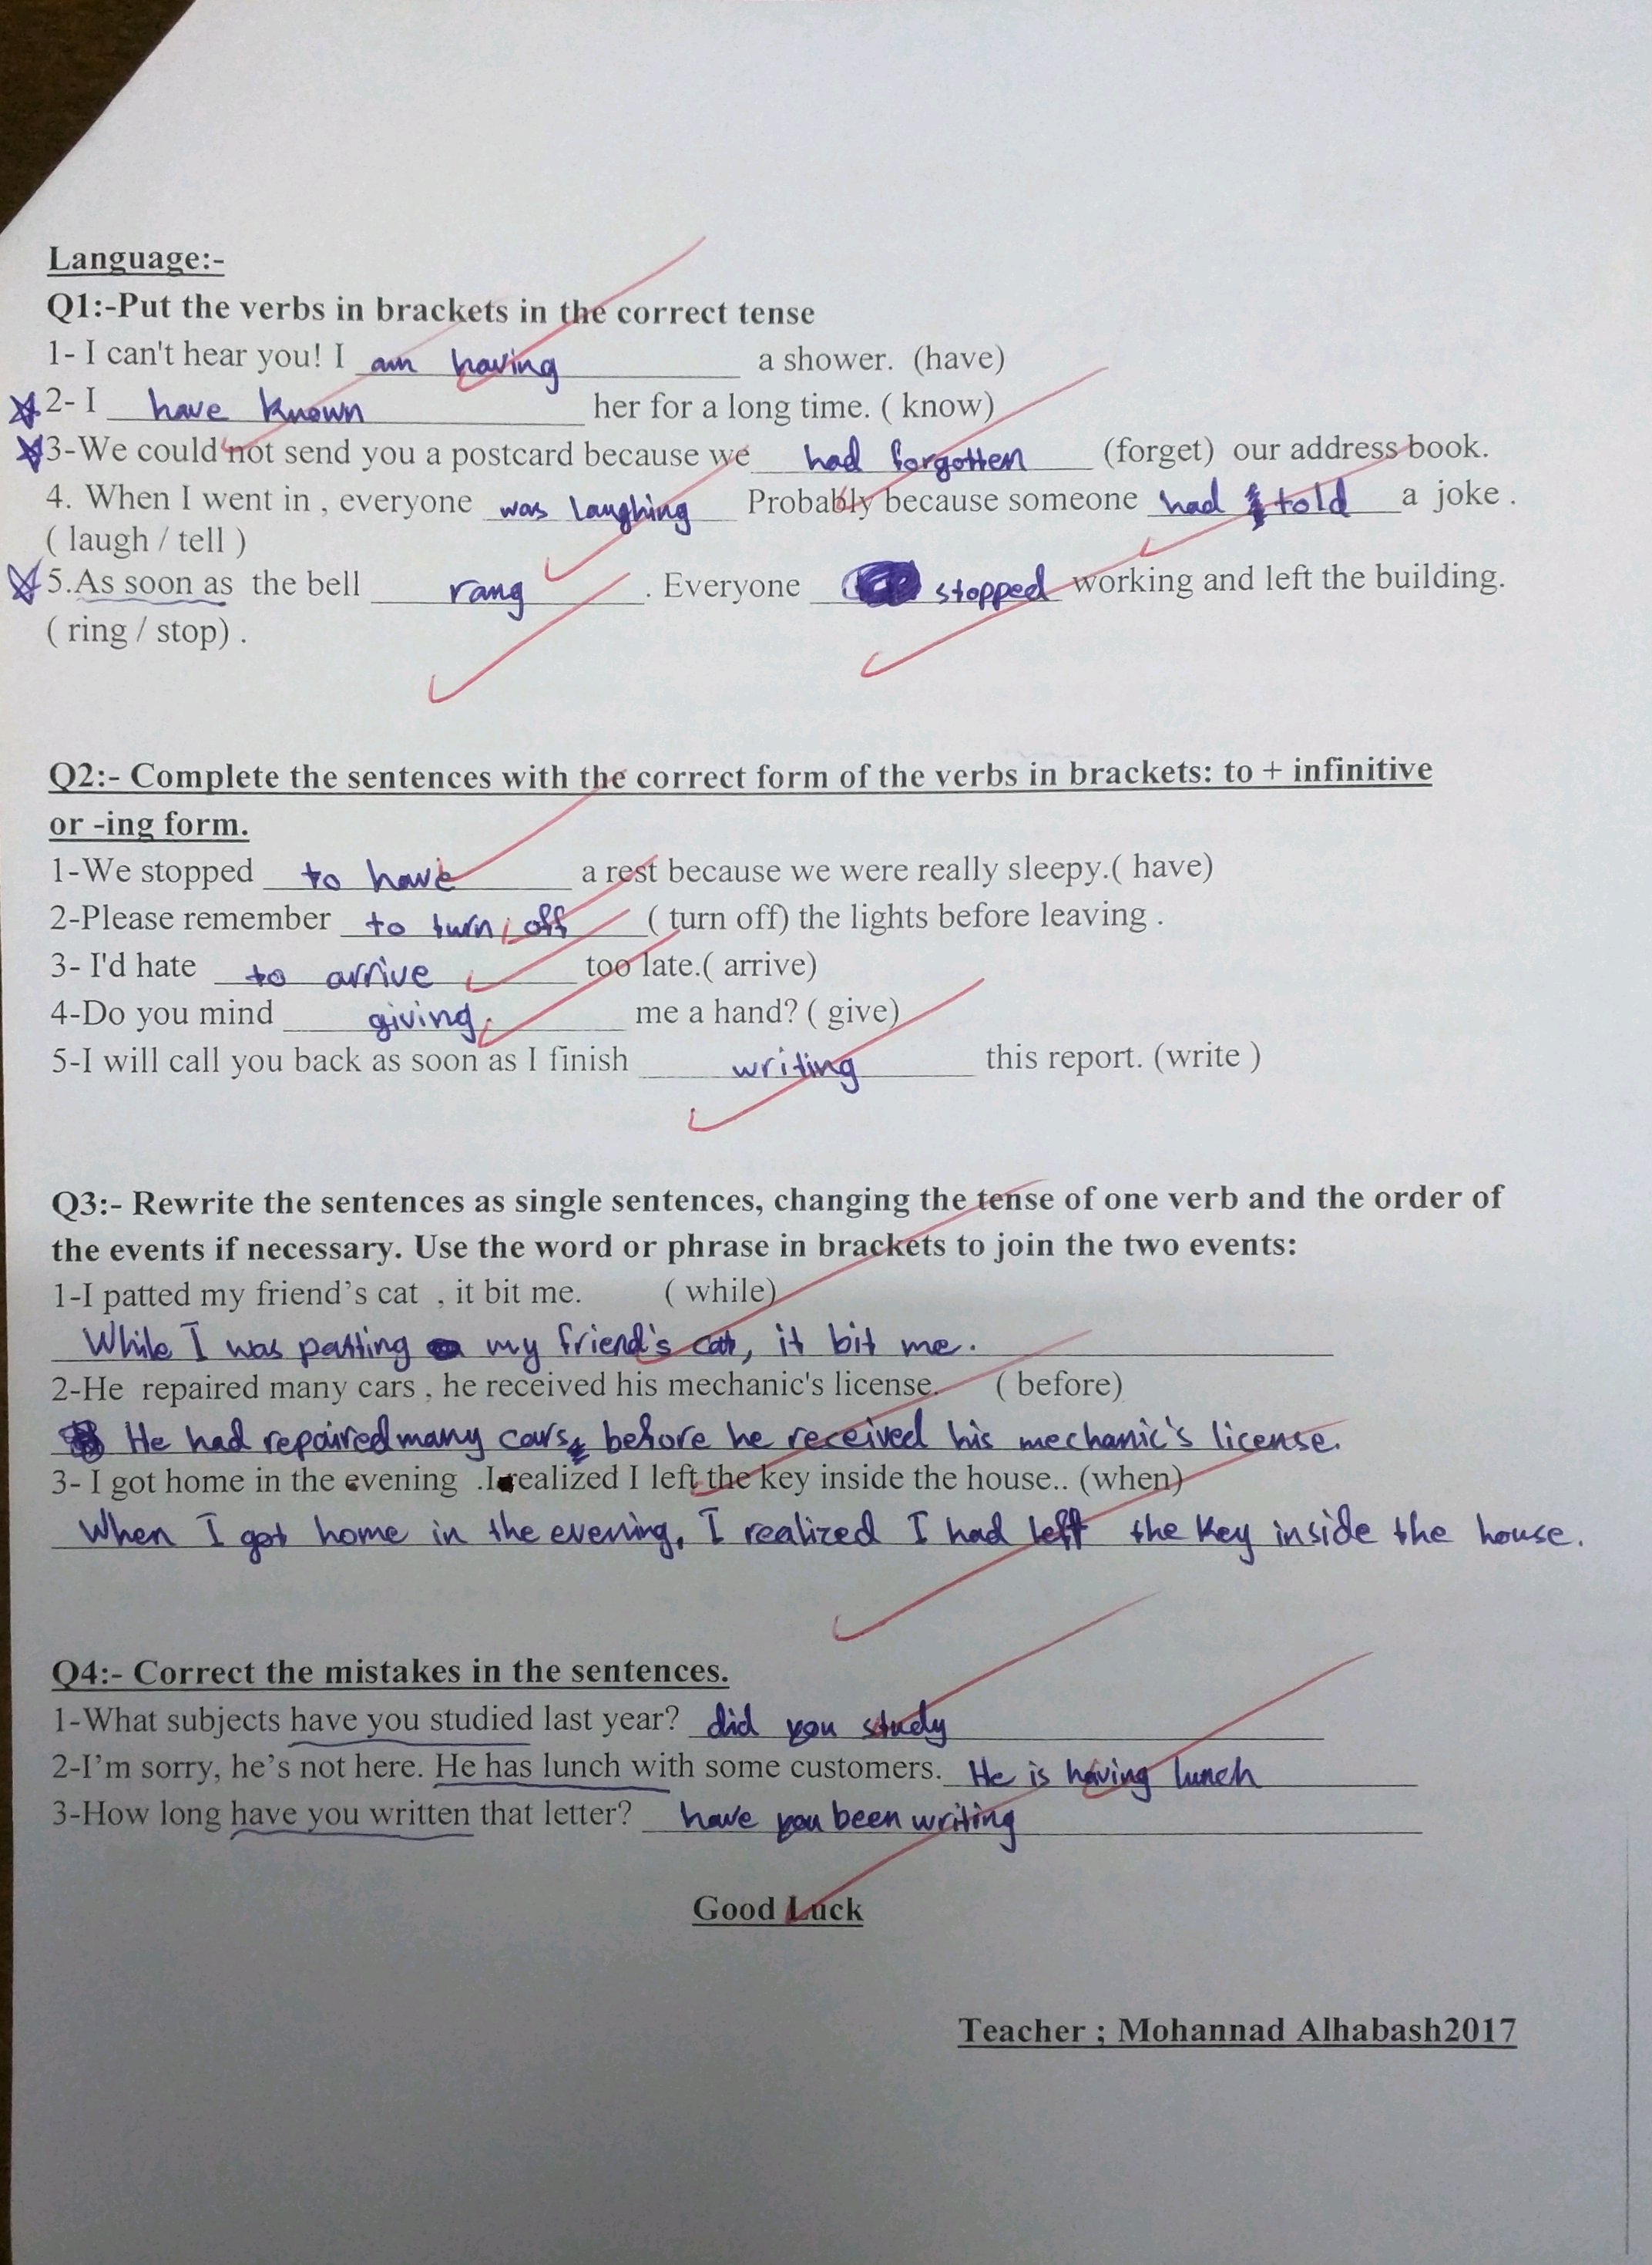 Language:-
Q1:-Put the verbs in brackets in the correct tense
1- I can't hear you! I am having a shower. (have)
2- I have known her for a long time. ( know)
3-We could not send you a postcard because we had forgotten (forget) our address book.
4. When I went in , everyone was laughing Probably because someone had told a joke .
( laugh / tell )
5.As soon as the bell rang . Everyone stopped working and left the building.
( ring / stop) .
Q2:- Complete the sentences with the correct form of the verbs in brackets: to + infinitive
or -ing form.
1-We stopped to have a rest because we were really sleepy.( have)
2-Please remember to turn off ( turn off) the lights before leaving .
3- I'd hate to arrive too late.( arrive)
4-Do you mind giving me a hand? ( give)
5-I will call you back as soon as I finish writing this report. (write )
Q3:- Rewrite the sentences as single sentences, changing the tense of one verb and the order of
the events if necessary. Use the word or phrase in brackets to join the two events:
1-I patted my friend’s cat , it bit me. ( while)
While I was patting my friend's cat, it bit me.
2-He repaired many cars , he received his mechanic's license. ( before)
He had repaired many cars before he received his mechanic's license.
3- I got home in the evening .I realized I left the key inside the house.. (when)
When I got home in the evening, I realized I had left the key inside the house.
Q4:- Correct the mistakes in the sentences.
1-What subjects have you studied last year? did you study
2-I’m sorry, he’s not here. He has lunch with some customers. He is having lunch
3-How long have you written that letter? have you been writing
Good Luck
Teacher ; Mohannad Alhabash2017